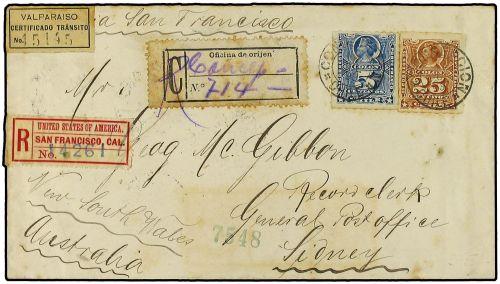 VALPARAISO
CERTIFICADO TRÁNSITO
No. 15145
via San Francisco
Oficina de orijen
C
N.° 714
5
25
R
UNITED STATES OF AMERICA.
SAN FRANCISCO, CAL.
No. 14261
Mr.
Mc. Gibbon
Record clerk
General Post office
Sidney
New South Wales
Australia
7548